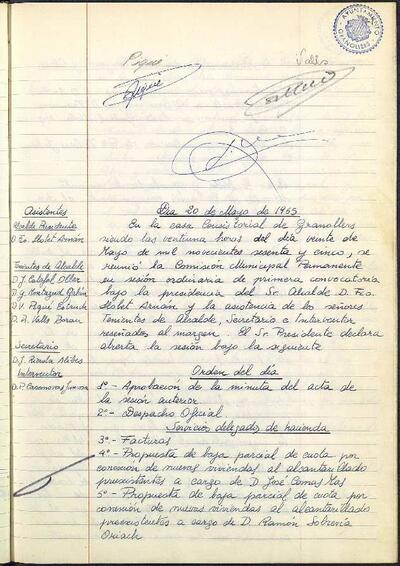 AYUNTAMIENTO
GRANOLLERS
Piqué
Valls
Piqué
Asistentes
Alcalde Presidente
D. Fco. Llobet Arnán
Tenientes de Alcalde
D. J.
D. J.
D. V. Piqué
D. A. Valls
Secretario
D. J.
Interventor
D. P.
Dia 20 de Mayo de 1965
En la casa Consistorial de Granollers
siendo las veintiuna horas del dia veinte de
Mayo de mil novecientos sesenta y cinco, se
reunió la Comisión Municipal Permanente
en sesión ordinaria de primera convocatoria
bajo la presidencia del Sr. Alcalde D. Fco.
Llobet Arnán y la asistencia de los señores
Tenientes de Alcalde, Secretario e Interventor
reseñados al margen. El Sr. Presidente declara
abierta la sesión bajo la siguiente
Orden del dia
1º - Aprobación de la minuta del acta de
la sesión anterior
2º - Despacho Oficial
Servicios delegados de hacienda
3º - Facturas
4º - Propuesta de baja parcial de cuota por
conexión de nuevas viviendas al alcantarillado
preexistentes a cargo de D. José Comas Mas
5º - Propuesta de baja parcial de cuota por
conexión de nuevas viviendas al alcantarillado
preexistentes a cargo de D. Ramón Sobrevia